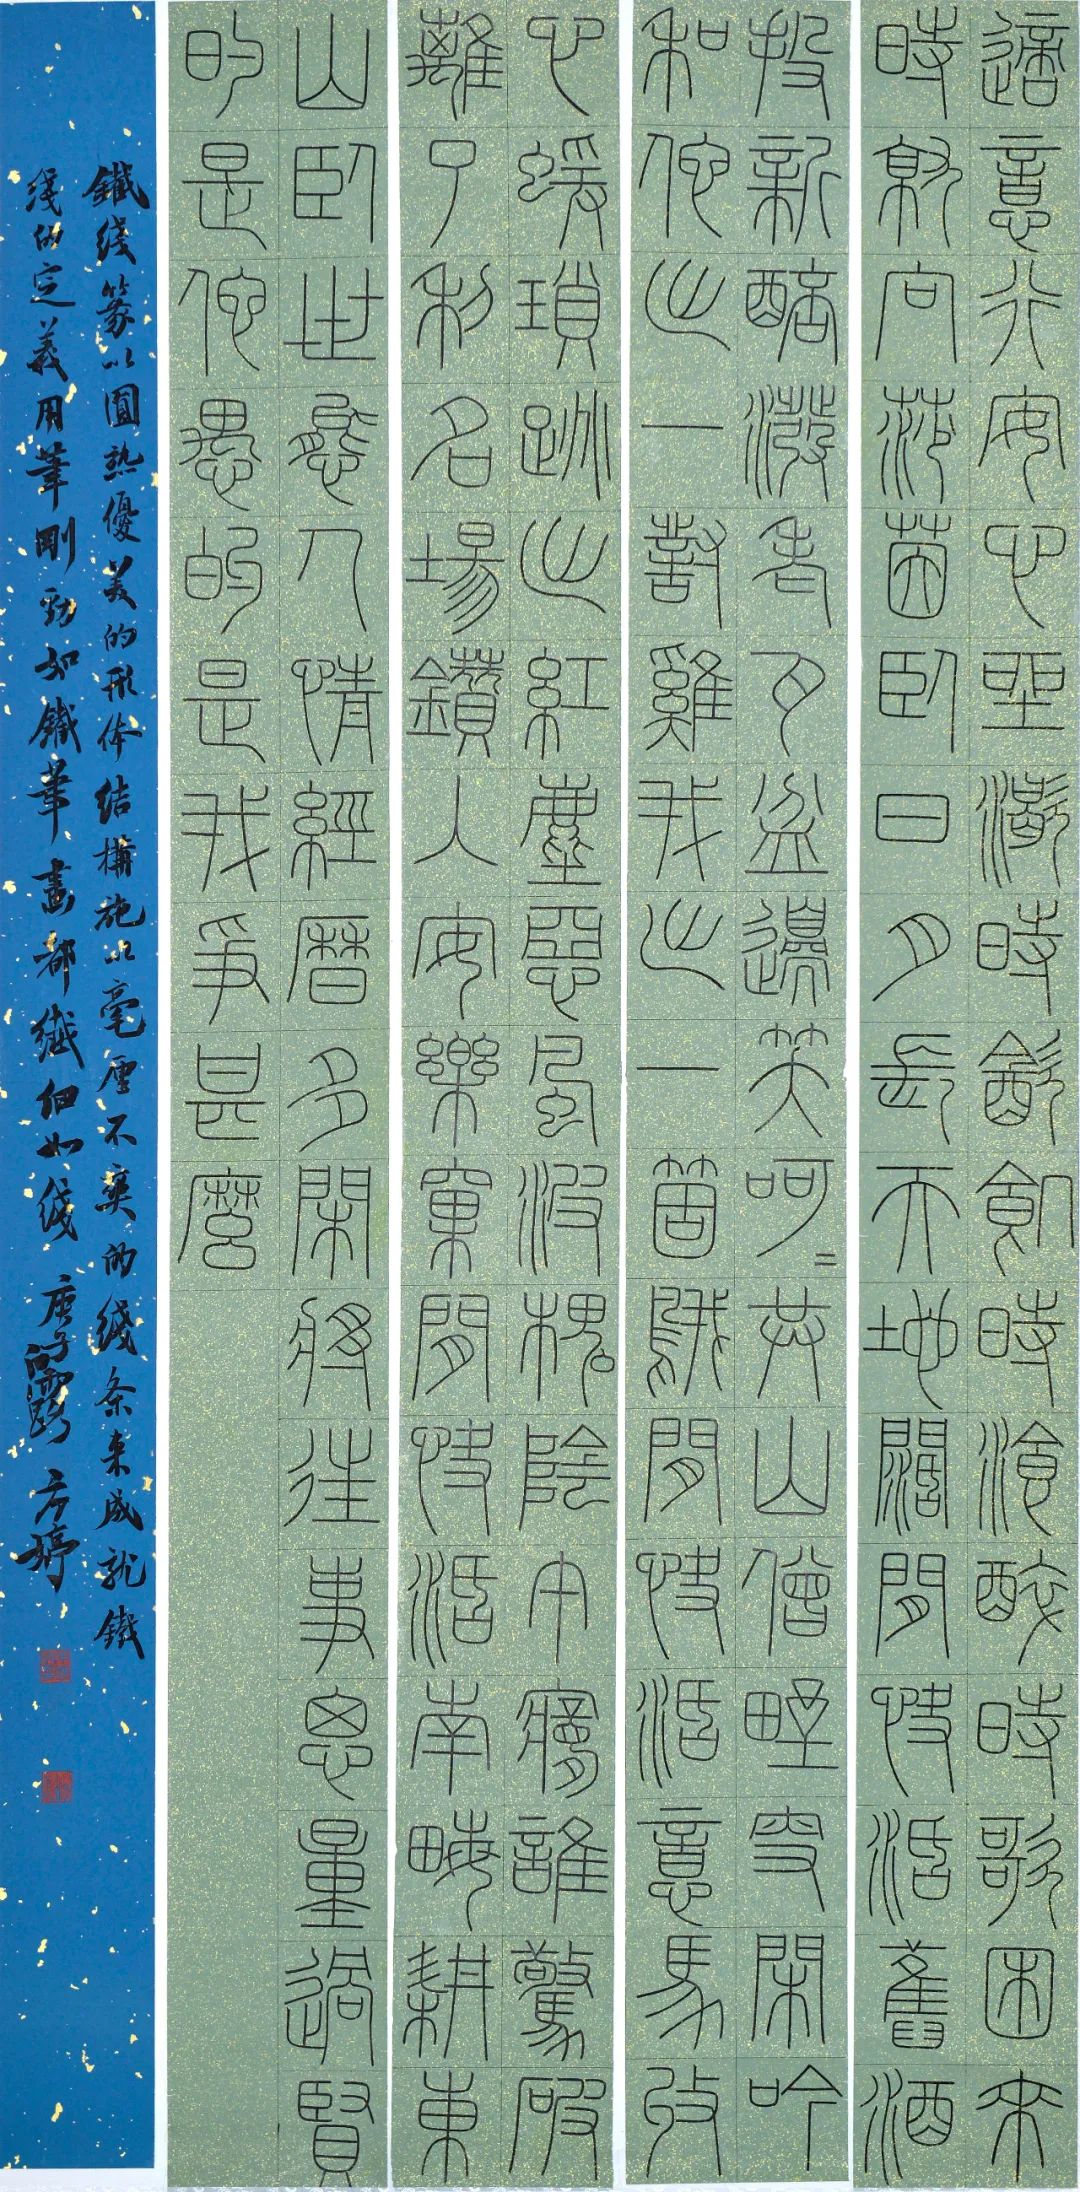 適意行安心坐渴時飲飢時湌醉時歌困来
時就向莎茵卧日月長天地闊閒快活舊酒
投新醅潑老瓦盆邊笑呵=共山僧野叟閑吟
和他出一對雞我出一箇鵝閒快活意馬收
心蝯鎖跳出紅塵惡風波槐陰午夢誰驚破
離了利名場鑽人安樂窠閒快活南畮耕東
山卧世態人情經曆多閑將往事思量過賢
的是他愚的是我爭甚麼
鐵线篆以圓熟優美的形体结構施以毫厘不爽的线条来成就鐵
线的定義用筆剛勁如鐵筆畫都纖细如线 庚子 方婷